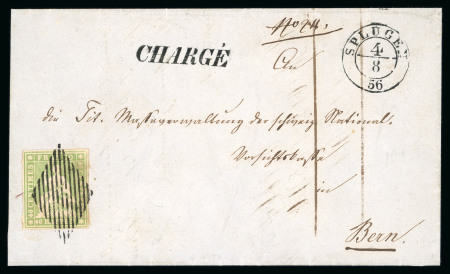 No 74.
SPLÜGEN
4
8
56
CHARGÉ
An
die Tit. Masseverwaltung der schweiz. National-
Vorsichtskasse
in
Bern.